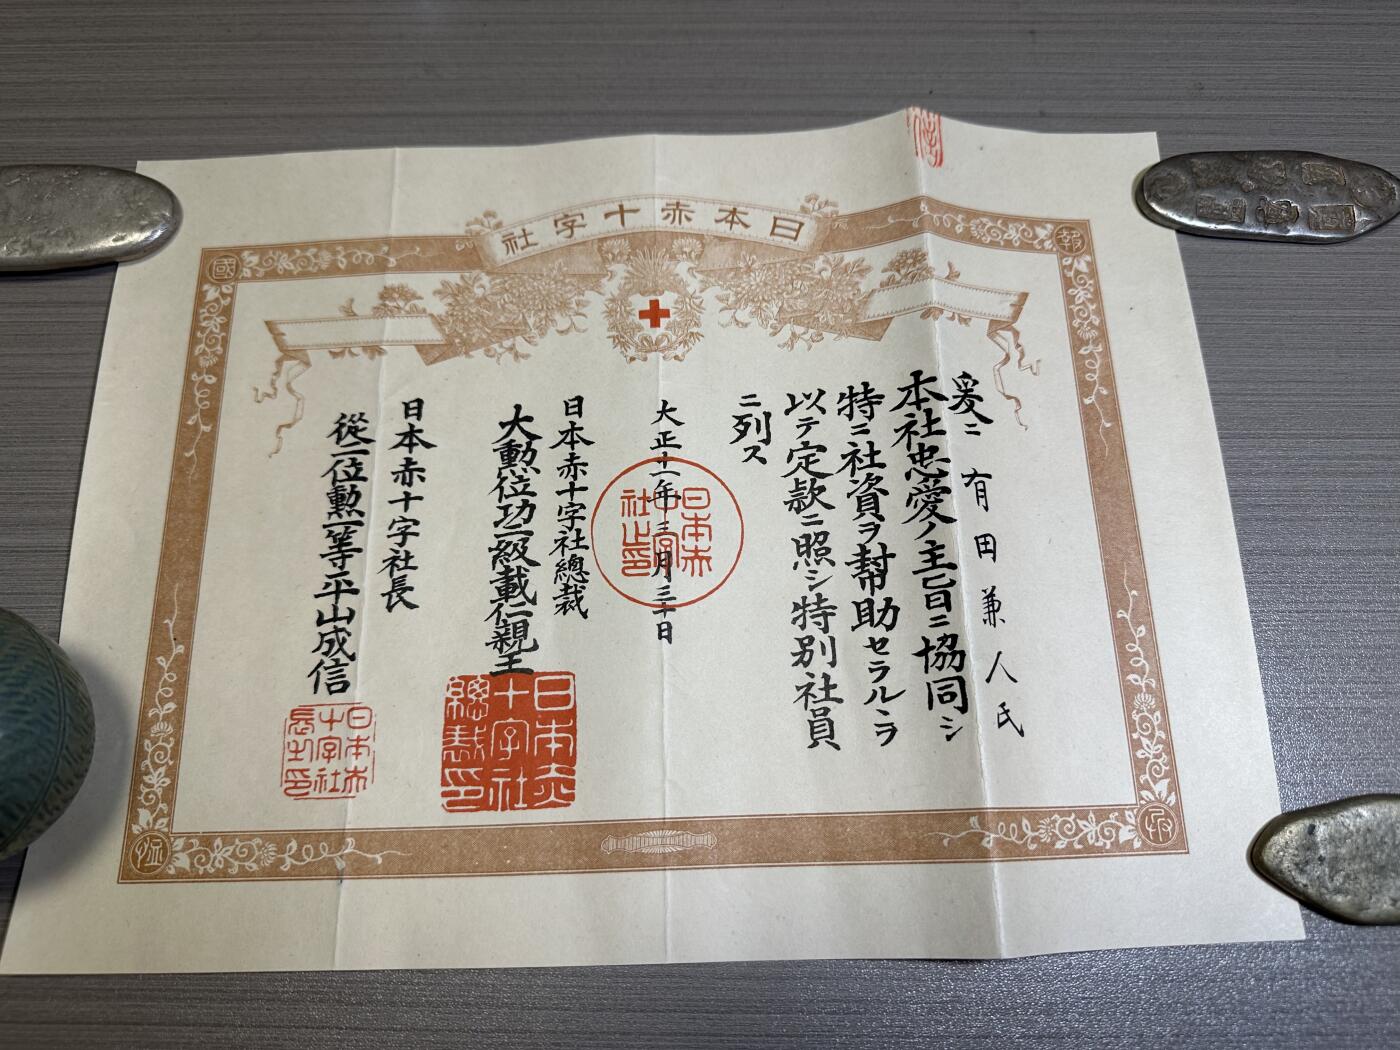 日本赤十字社
報
國
恤
爰ニ 有田兼人氏
本社忠愛ノ主旨ニ協同シ
特ニ社資ヲ幇助セラルヽヲ
以テ定款ニ照シ特別社員
ニ列ス
大正十一年三月三十日
日本赤十字社之印
日本赤十字社總裁
大勲位功二級載仁親王
日本赤十字社總裁印
日本赤十字社長
從二位勲一等平山成信
日本赤十字社長之印